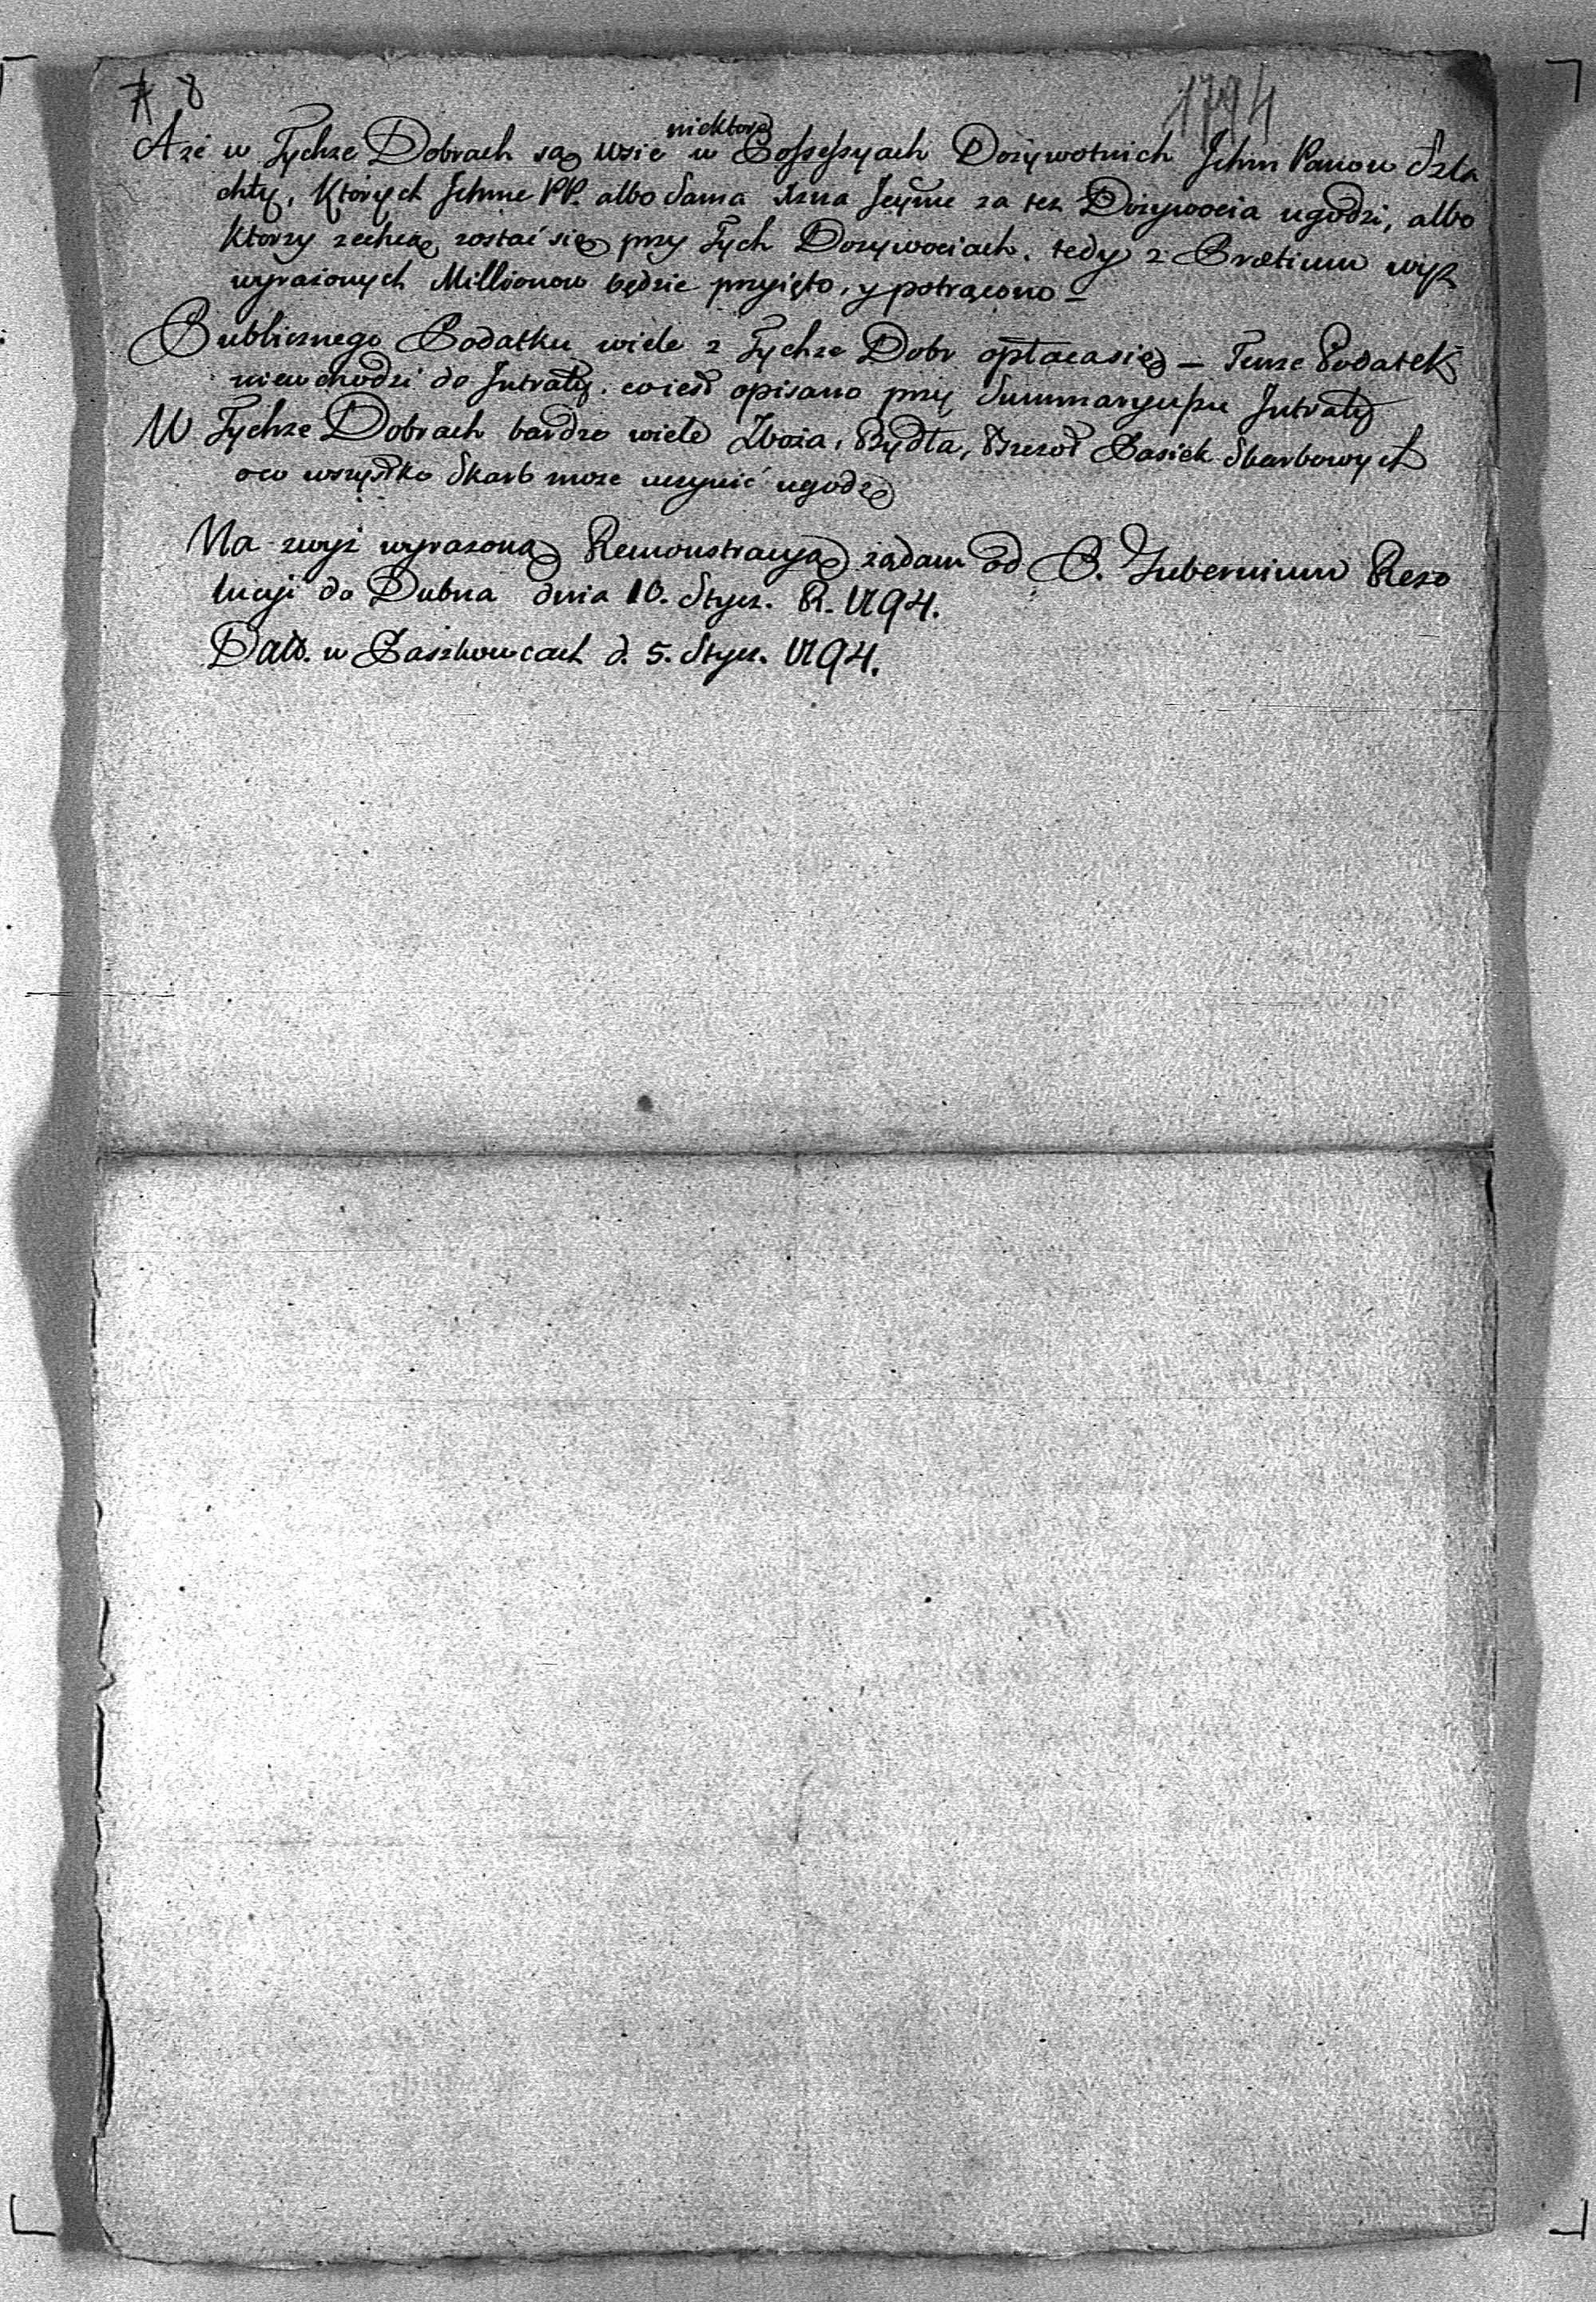 8
1794
niektore
A że w Tychże Dobrach są Wsie w Possessyach Dożywotnich Jchm Panow Szla
chty, Których Jchme PP. albo Sama za też Dożywocia ugodzi, albo
Ktorzy zechcą zostać się przy Tych Dożywociach. tedy z Prætium wyż
wyrażonych Millionow będzie przyięto, y potrącono –
Publicznego Podatku wiele z Tychże Dobr opłaca się – Tenże Podatek
niewchodzi do Jntraty. co iest opisano przy Summaryuszu Jntraty
W Tychże Dobrach bardzo wiele Zboża, Bydła, Pszczoł Pasiek Skarbowych
oco wszystko Skarb może uczynić ugodę
Na zwyż wyrażoną Remonstracyą żądam od P. Gubernium Rezo
lucyi do Dubna dnia 10. Stycz. R. 1794.
Datt. w Paszkowcach d. 5. Stycz. 1794.